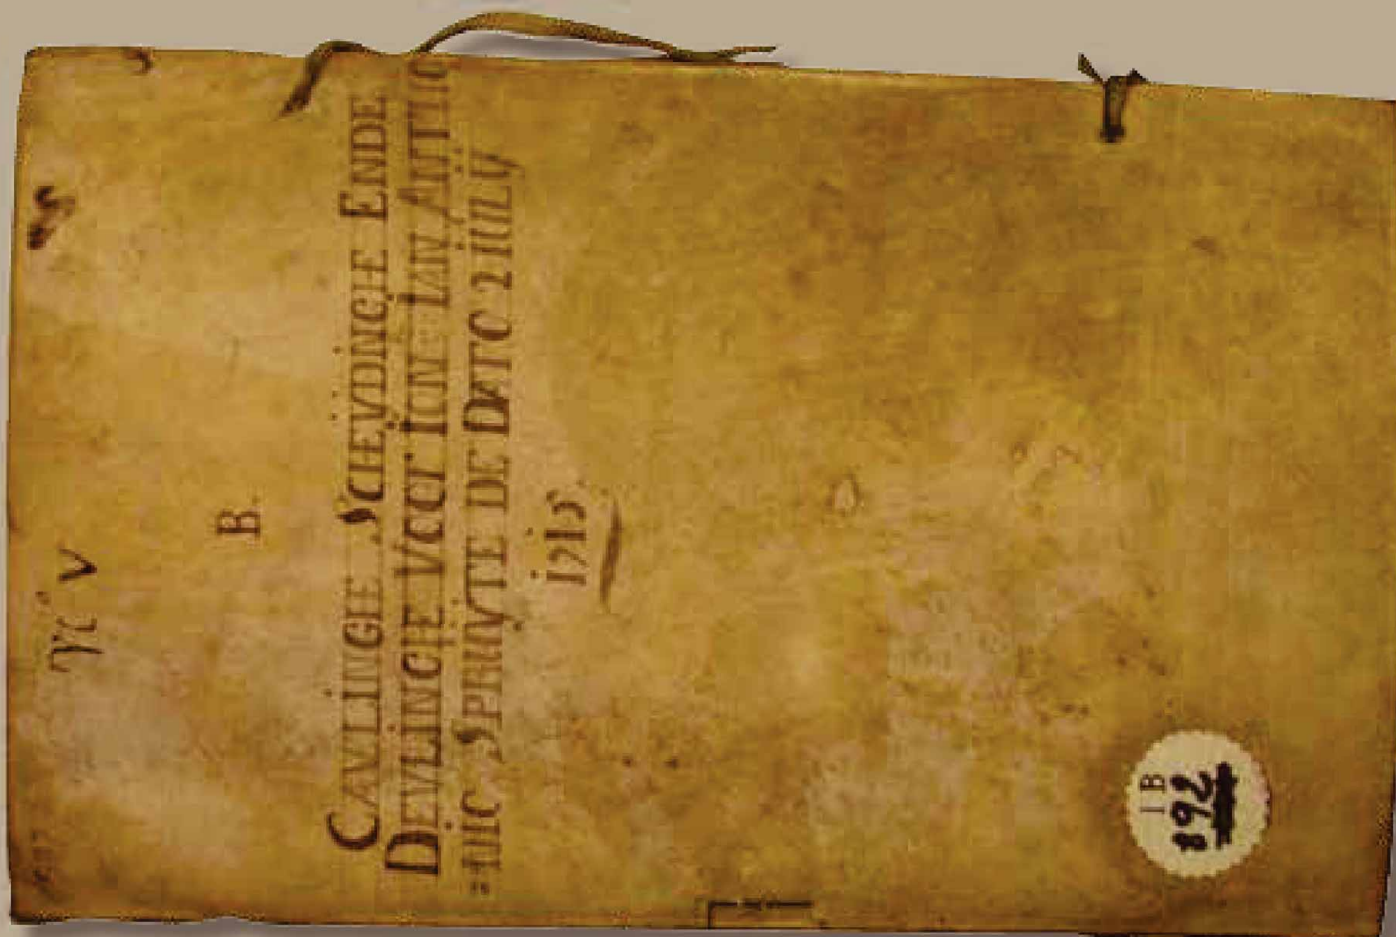 B.
CAVLINGIE SCHEVDINGIE ENDE
DEVLINGIE VCCT IONr IAN ANTHO
=NIC SPRUYTE DE DATO 2 IULY
1715
IB
892